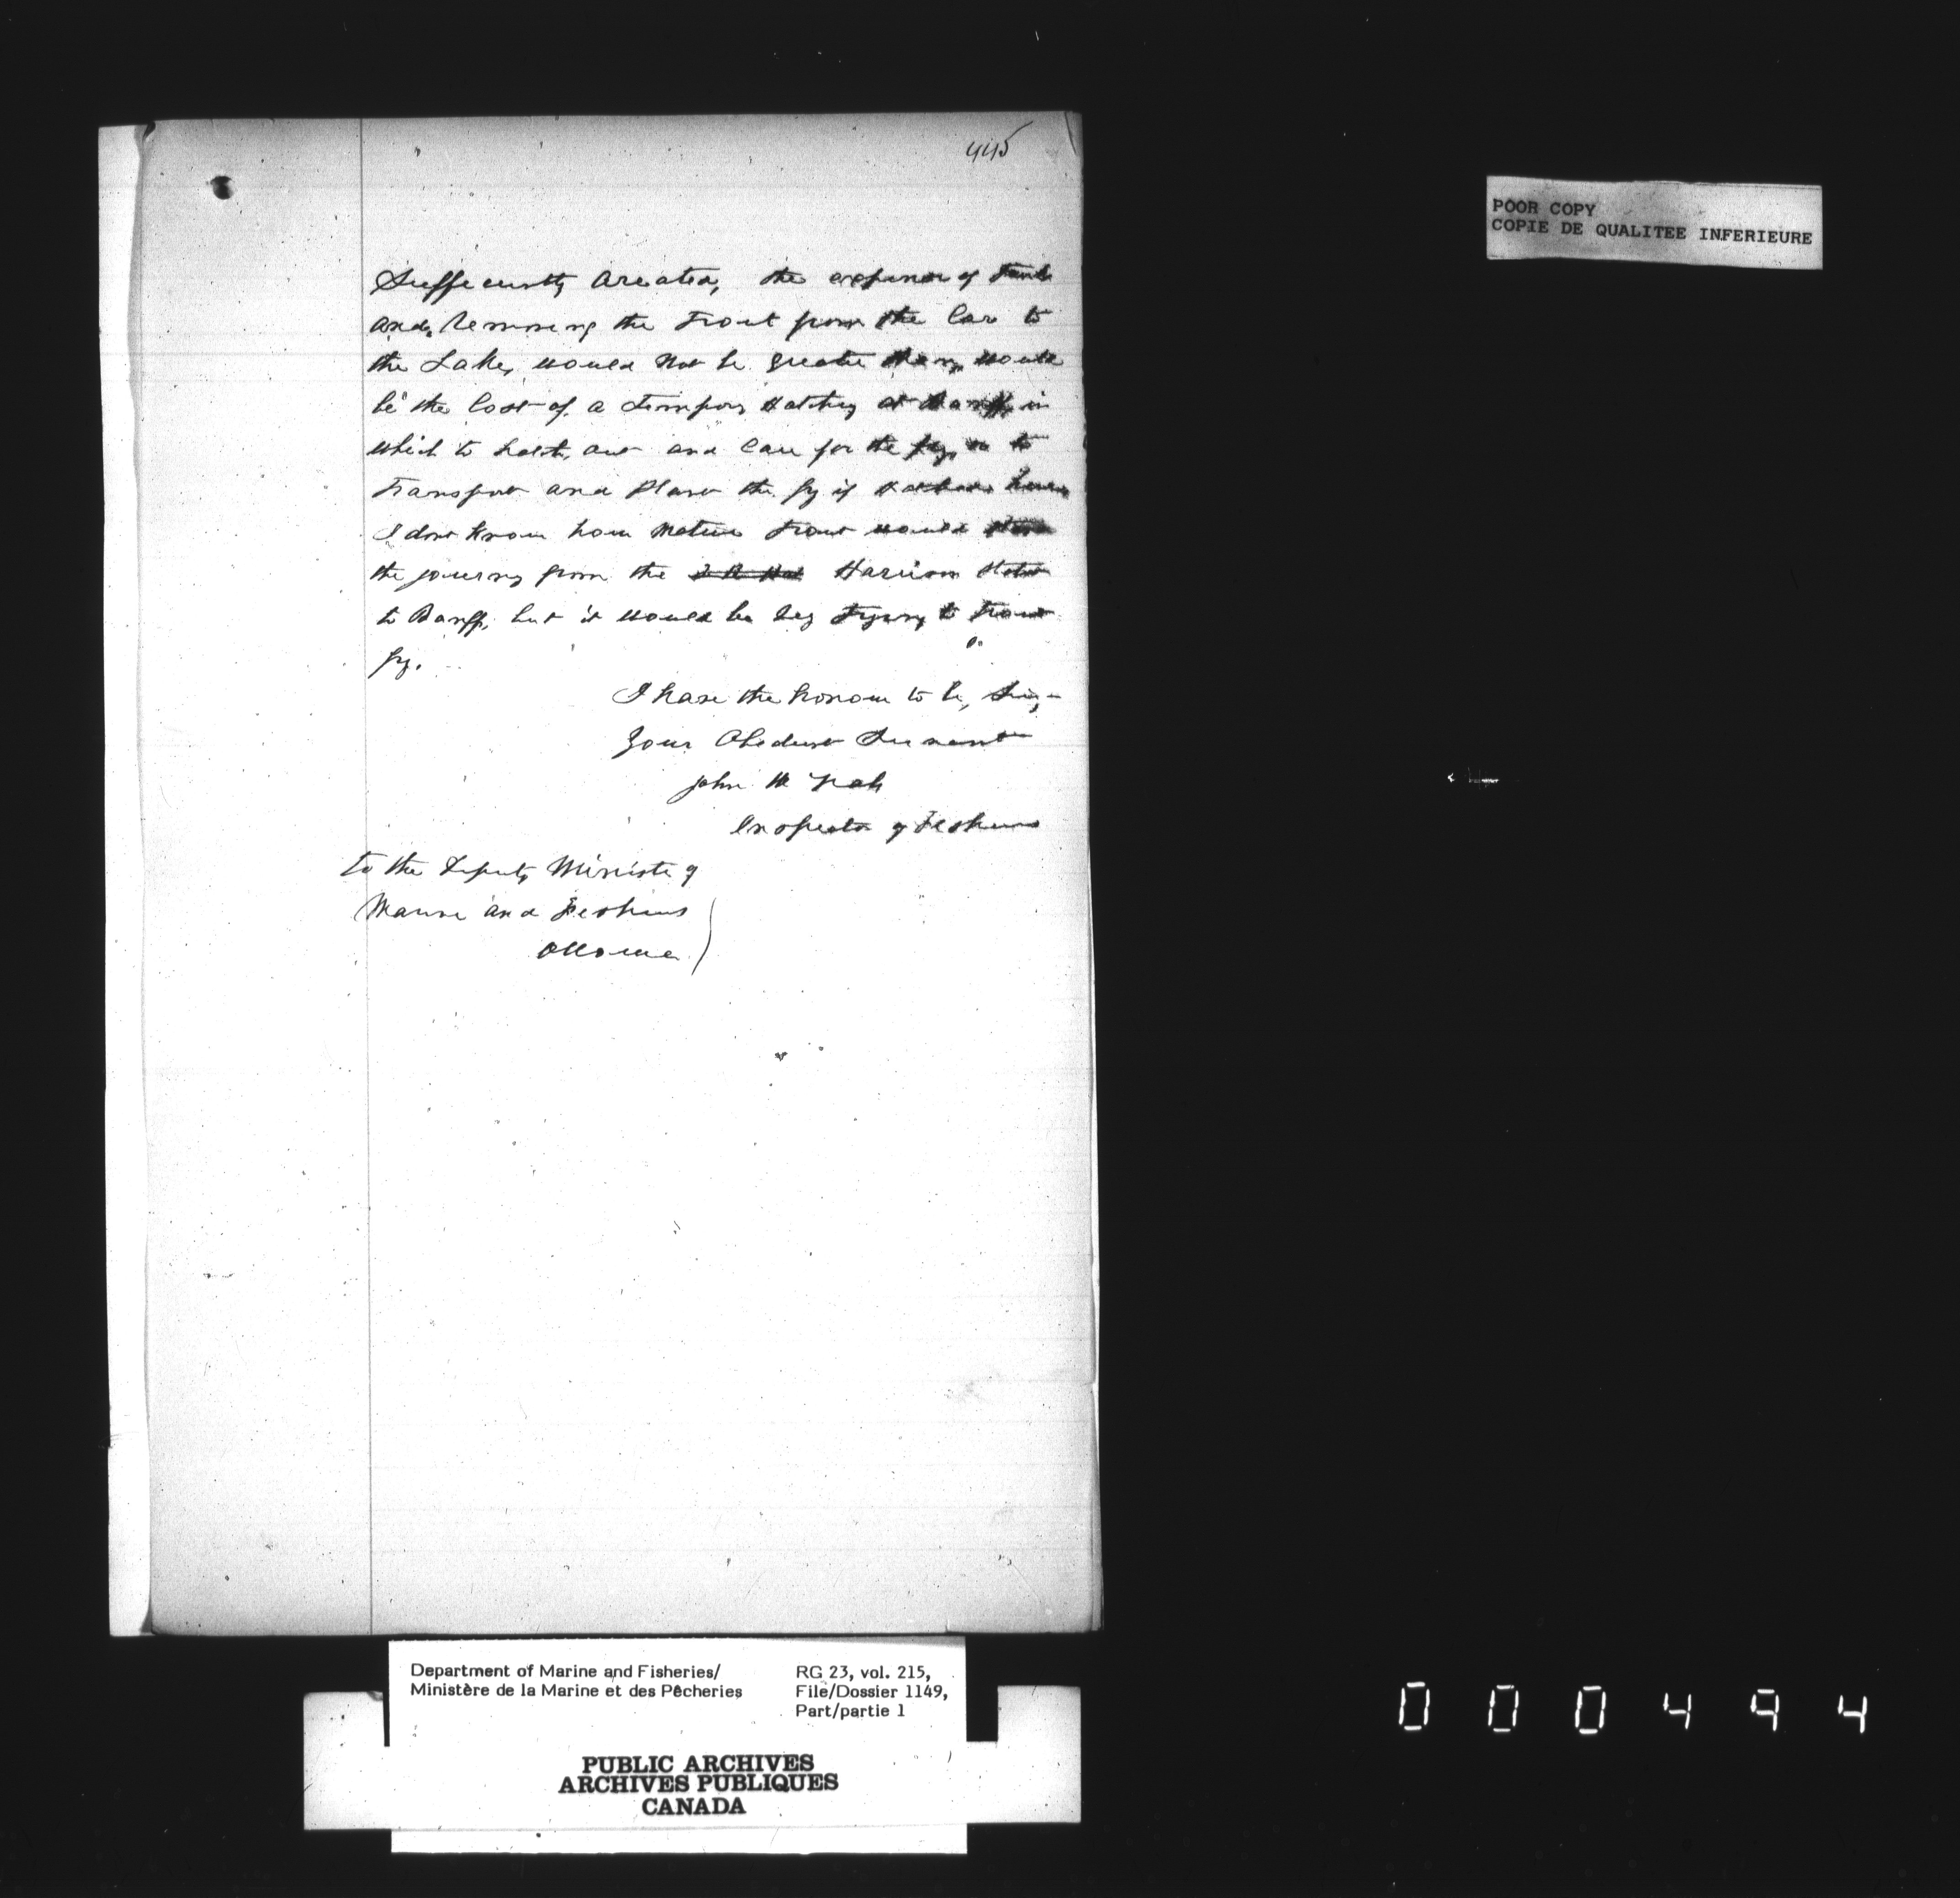 445
POOR COPY
COPIE DE QUALITEE INFERIEURE
Sufficiently Areated, the expense of Tank
and removing the Trout from the Car to
the Lake, would not be greater than would
be the Cost of a Tempory Hatchey at Banff in
which to hatch out and Care for the fry, or to
Transport and Plant the fry if hatched here
I dont know how Mature Trout would
the journey from the Harrison
to Banff, but it would be very Trying to Trout
fry.
I have the honour to be, Sir,
Your Obedient Servant
John
Inspector of Fisheries
To the Deputy Minister of
Marine and Fisheries
Ottawa
Department of Marine and Fisheries/
Ministère de la Marine et des Pêcheries
RG 23, vol. 215,
File/Dossier 1149,
Part/partie 1
PUBLIC ARCHIVES
ARCHIVES PUBLIQUES
CANADA
000494